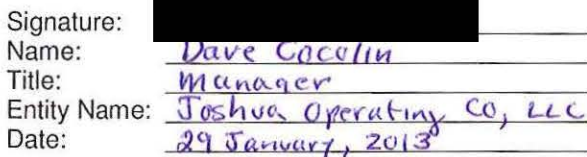 Signature:
Name: Dave Cocolin
Title: Manager
Entity Name: Joshua Operating Co, LLC
Date: 29 January, 2013